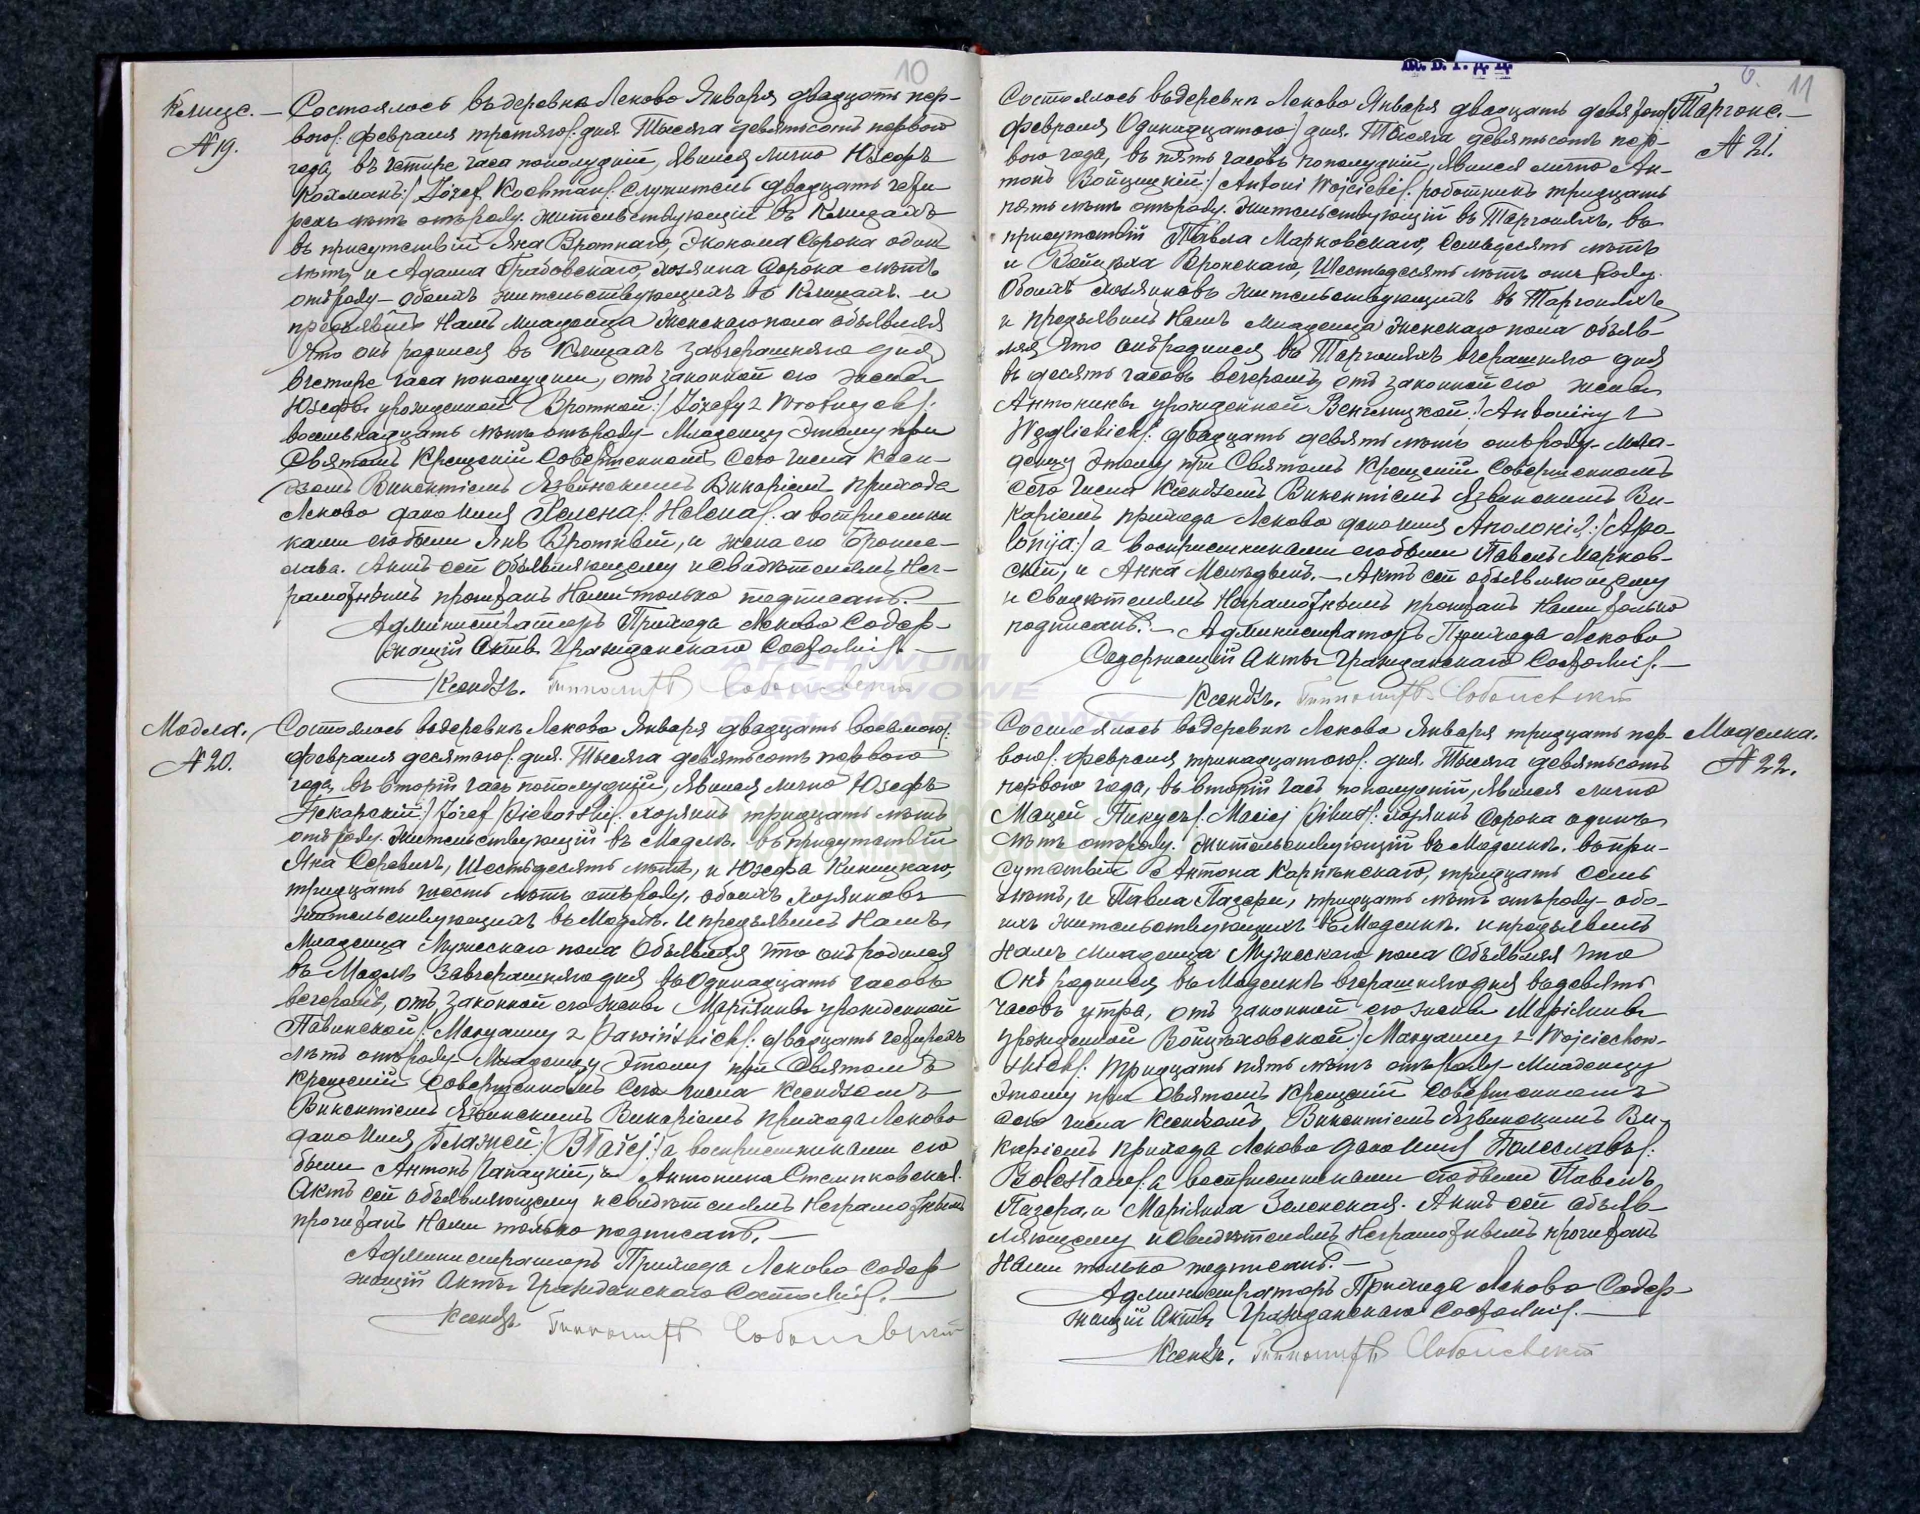 10
Клице. —
№ 19.
Состоялось въ деревнѣ Леково Января двадцать пер-
ваго/: Февраля третяго/: дня. Тысяча девятьсотъ перваго
года, въ четыре часа пополудни, явился лично Юзефъ
Кохманъ:/ Józef Kochman/: служитель двадцать четы-
рехъ лѣтъ отъ роду. жительствующій въ Клицахъ
въ присутствіи Яна Вротнаго, Эконома Сорока одинъ
лѣтъ, и Адама Грабовскаго, хозяина Сорока лѣтъ
отъ роду — обоихъ жительствующихъ въ Клицахъ. и
предъявилъ Намъ младенца женскаго пола объявляя
что онъ родился въ Клицахъ завчерашняго дня,
въ четыре часа пополудни, отъ законной его жены
Юзефы урожденной Вротной:/ Józefy z Wrotnych/:
восемьнадцать лѣтъ отъ роду — Младенцу этому при
Святомъ Крещеніи совершенномъ сего числа Ксен-
дзомъ Викентіемъ Язвинскимъ Викаріемъ прихода
Леково дано имя Хелена/: Helena/: а воспріемни-
ками его были Янъ Вротный, и жена его Брони-
слава. Актъ сей объявляющему и свидѣтелямъ Нег-
рамотнымъ прочитанъ Нами только подписанъ. —
Администраторъ Прихода Леково Содер-
жащій Акты Гражданскаго Состоянія. —
Ксендзъ. Ипполитъ Соболевскій
Модла.
№ 20.
Состоялось въ деревнѣ Леково Января двадцать восьмого/:
Февраля десятого/: дня. Тысяча девятьсотъ перваго
года, въ вторій часъ пополудни, явился лично Юзефъ
Пекарскій:/ Józef Piekarski/: хозяинъ тридцать лѣтъ
отъ роду. жительствующій въ Модлѣ. въ присутствіи
Яна Серевичъ, Шестьдесятъ лѣтъ, и Юзефа Киницкаго,
тридцать шесть лѣтъ отъ роду, обоихъ хозяиновъ
жительствующихъ въ Модлѣ. И предъявилъ Намъ
Младенца Мужескаго пола Объявляя что онъ родился
въ Модлѣ завчерашняго дня въ Одинадцать часовъ
вечеромъ, отъ законной его жены Маріянны урожденной
Павинской/: Maryanny z Pawińskich/: двадцать четырехъ
лѣтъ отъ роду — Младенцу этому при Святомъ
Крещеніи Совершенномъ сего числа Ксендзомъ
Викентіемъ Язвинскимъ Викаріемъ прихода Леково
дано имя Блажей:/ Błażej:/ а воспріемниками его
были Антонъ Чапацкій, и Антонина Стемпковская.
Актъ сей объявляющему и свидѣтелямъ Неграмотнымъ
прочитанъ Нами только подписанъ. —
Администраторъ Прихода Леково содер-
жащій Акты Гражданскаго Состоянія. —
Ксендзъ. Ипполитъ Соболевскій
6. 11
Таргоне. —
№ 21.
Состоялось въ деревнѣ Леково Января двадцать девятого/:
Февраля Одинадцатого:/ дня. Тысяча девятьсотъ пер-
ваго года, въ пять часовъ пополудни, явился лично Ан-
тонъ Войцицкій:/ Antoni Wojcicki/: работникъ тридцать
пять лѣтъ отъ роду. жительствующій въ Таргоняхъ. въ
присутствіи Павла Марковскаго, Семьдесятъ лѣтъ
и Войцѣха Вронскаго, Шестьдесятъ лѣтъ отъ роду.
Обоихъ хозяиновъ жительствующихъ въ Таргоняхъ
и предъявилъ Намъ Младенца женскаго пола объяв-
ляя что онъ родился въ Таргоняхъ вчерашняго дня
въ десять часовъ вечеромъ, отъ законной его жены
Антонины урожденной Венглицкой:/ Antoniny z
Węglickich/: двадцать девять лѣтъ отъ роду. Мла-
денцу этому при Святомъ Крещеніи Совершенномъ
сего числа Ксендзомъ Викентіемъ Язвинскимъ Ви-
каріемъ прихода Леково дано имя Аполонія:/ Apo-
lonija:/ а воспріемниками его были Павелъ Марков-
скій, и Анна Мельдынъ. — Актъ сей объявляющему
и Свидѣтелямъ Неграмотнымъ прочитанъ Нами только
подписанъ. — Администраторъ Прихода Леково
Содержащій Акты Гражданскаго Состоянія. —
Ксендзъ. Ипполитъ Соболевскій
Моделка.
№ 22.
Состоялось въ деревнѣ Леково Января тридцать пер-
ваго/: Февраля тринадцатого/: дня. Тысяча девятьсотъ
перваго года, въ вторій часъ пополудни, явился лично
Мацей Пикусъ/: Maciej Pikus/: хозяинъ Сорока одинъ
лѣтъ отъ роду. жительствующій въ Моделкѣ. въ при-
сутствіи Антона Карпинскаго, тридцать семь
лѣтъ, и Павла Пазеры, тридцать лѣтъ отъ роду — обо-
ихъ жительствующихъ въ Моделкѣ. и предъявилъ
Намъ Младенца Мужескаго пола Объявляя что
Онъ родился въ Моделкѣ вчерашняго дня въ девять
часовъ утра, отъ законной его жены Маріянны
урожденной Войцѣховской:/ Maryanny z Wojciechow-
skich/: тридцать пять лѣтъ отъ роду — Младенцу
этому при Святомъ Крещеніи Совершенномъ
сего числа Ксендзомъ Викентіемъ Язвинскимъ Ви-
каріемъ прихода Леково дано имя Болеславъ/:
Bolesław/: а воспріемниками его были Павелъ
Пазера, и Маріянна Зеленская. Актъ сей объяв-
ляющему и свидѣтелямъ Неграмотнымъ прочитанъ
Нами только подписанъ. —
Администраторъ Прихода Леково Содер-
жащій Акты Гражданскаго Состоянія. —
Ксендзъ. Ипполитъ Соболевскій
ARCHIWUM
PAŃSTWOWE
WARSZAWY